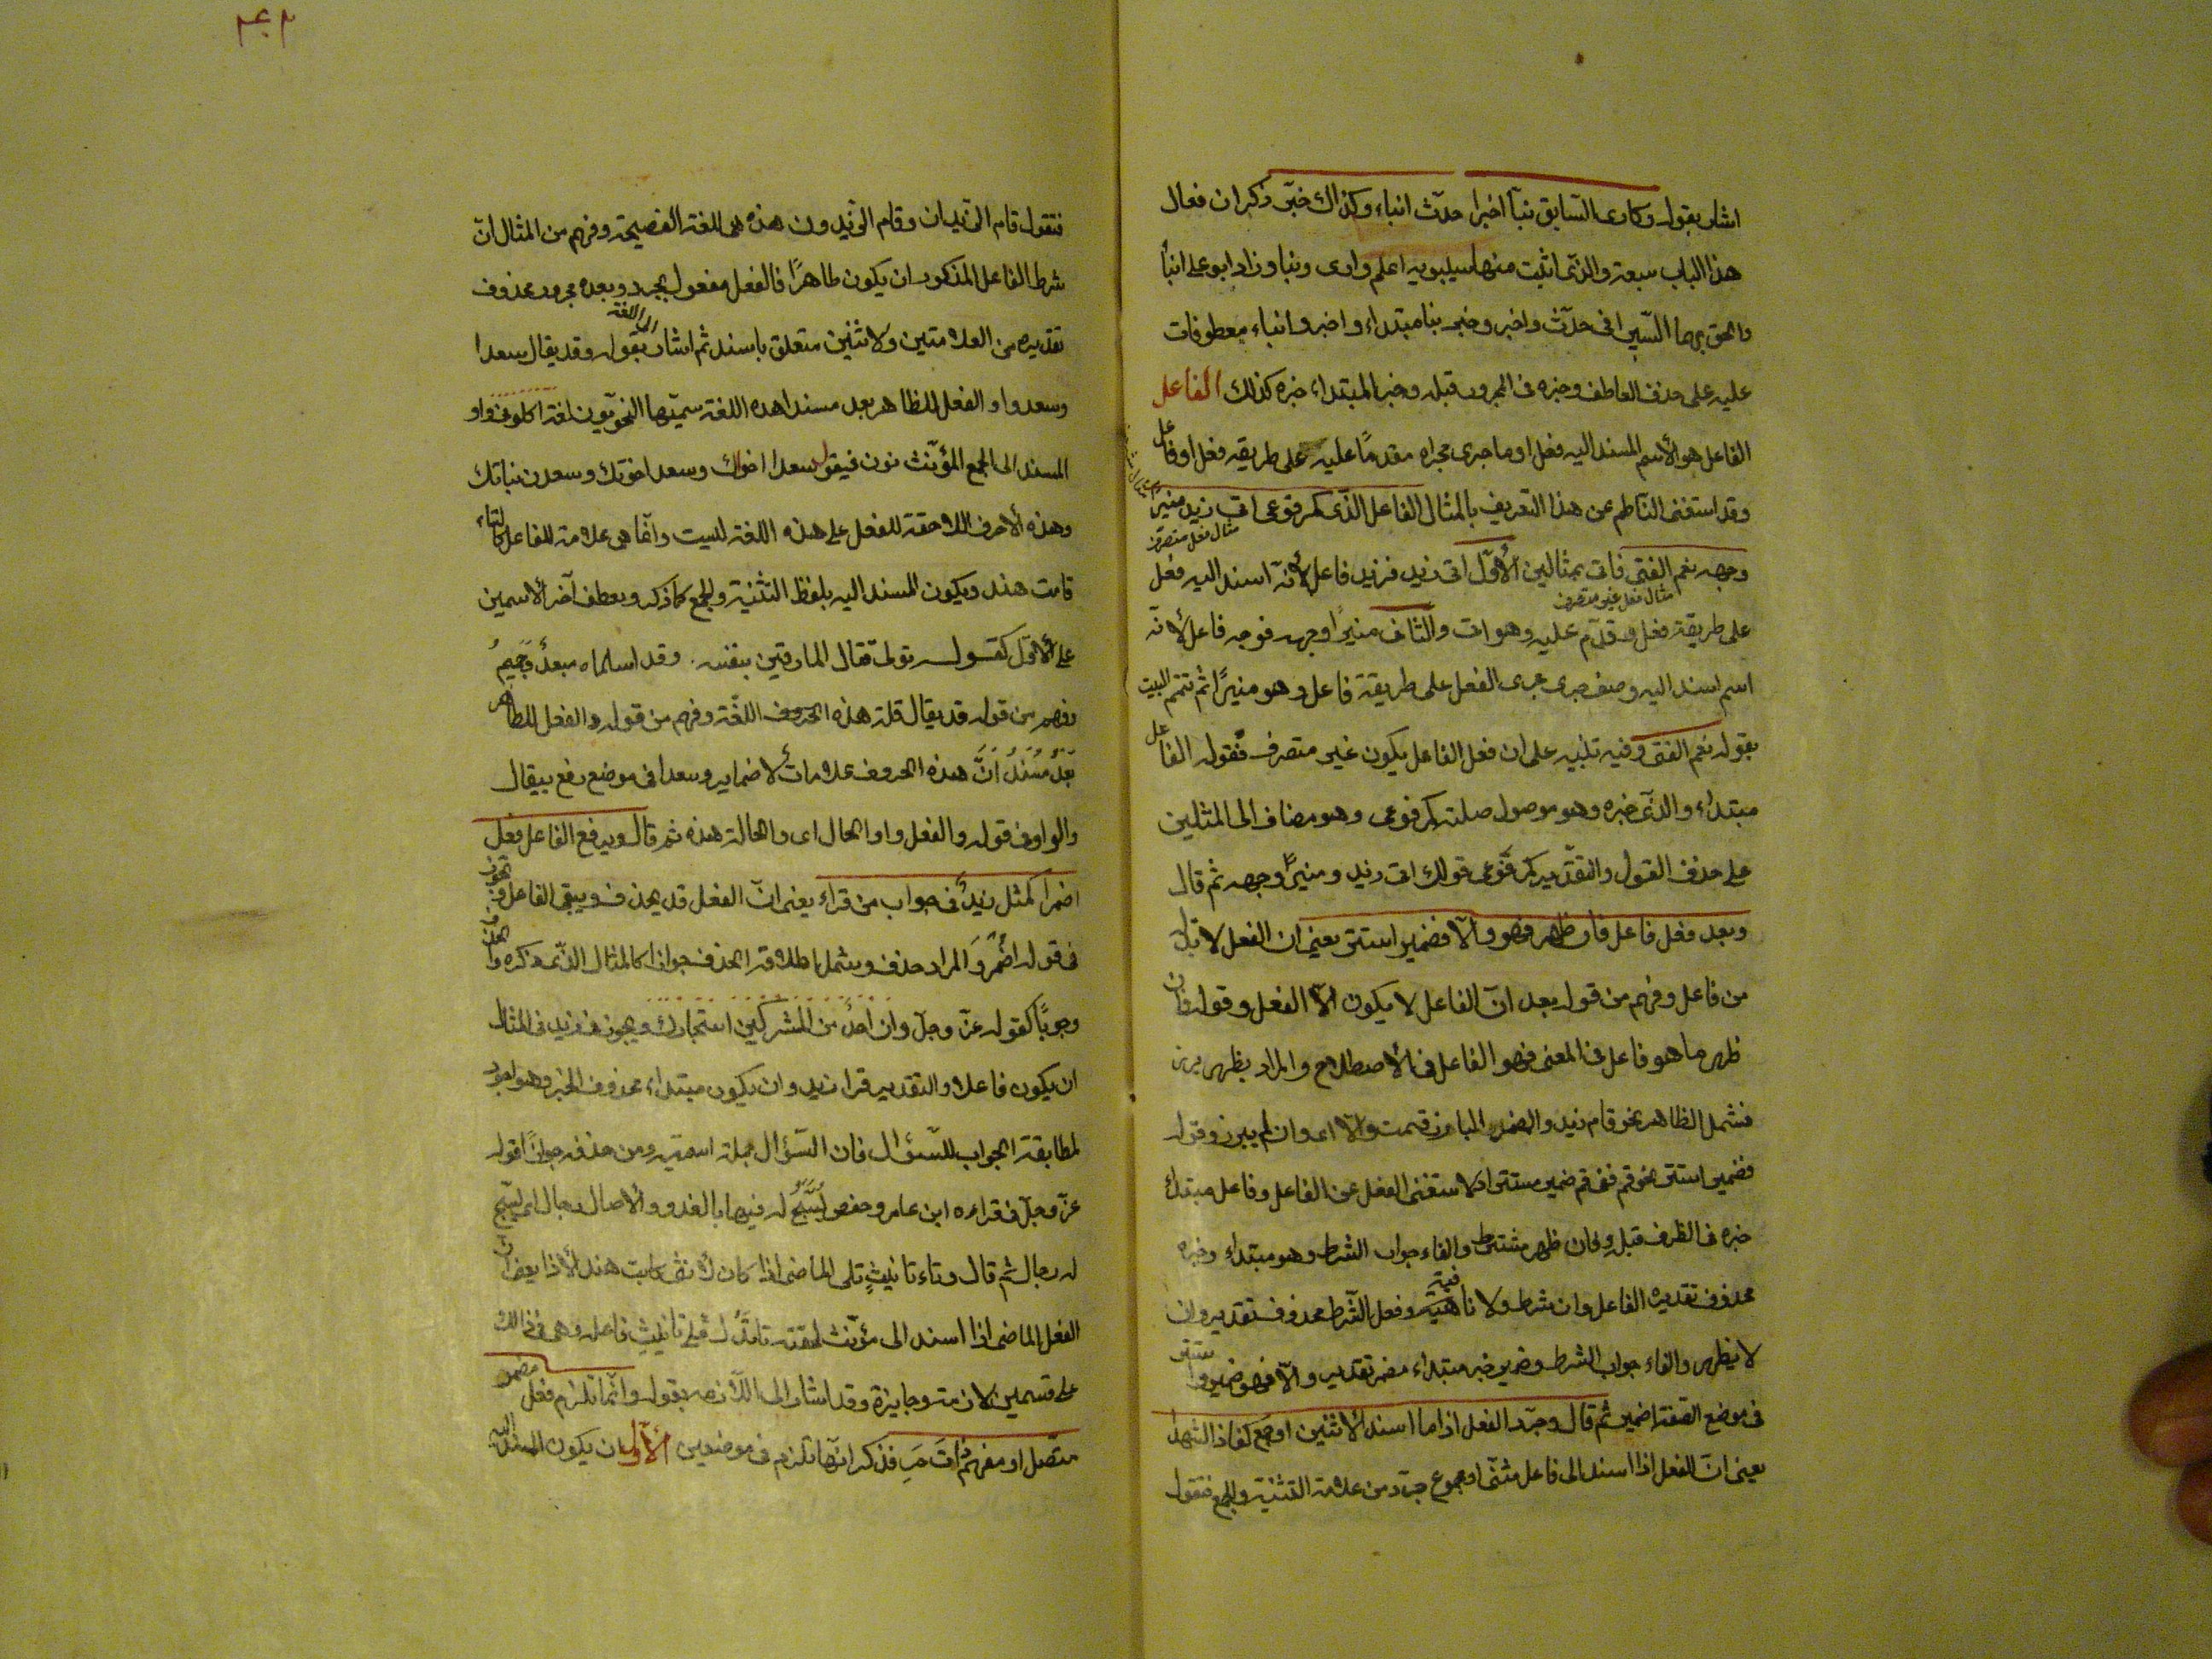 اشار بقوله وكارى السابق نبّا اخبرا حدّث انباء وكذاك خبّر ذكر ان فعال
هذا الباب سبعة والذى اثبت منها سيبويه اعلم وارى ونبا وزاد ابو على انبأ
والحق بهما السيرافى حدّث واخبر وخبر نبا مبتداء واخبر وانباء معطوفات
عليه على حذف العاطف وخبره فى المجرور قبله وخبر المبتداء خبره كذلك الفاعل
الفاعل هو الأسم المسند اليه فعل او ما جرى مجراه مقدمًا عليه على طريقه فعل او فاعل
وقد استغنى الناظم عن هذا التعريف بالمثال الفاعل الذى كمرفوعى اتى زيد منيرا
مثال فعل متصرف
وجهه نعم الفتى فاتى بمثالين الأوّل اتى زيد فزيد فاعل لأنه اسند اليه فعل
مثال فعل غير متصرف
على طريقة فعل وقدّم عليه وهو اتى والثانى منيرًا وجهه فوجه فاعل لأنه
اسم اسند اليه وصف جرى مجرى الفعل على طريقة فاعل وهو منيرًا ثم تتم البيت
بقوله نعم الفتى وفيه تنبيه على ان فعل الفاعل يكون غير متصرف فقوله الفاعل
مبتداء والذى خبره وهو موصول صلته كمرفوعى وهو مضاف الى المثلين
على حذف القول والتقدير كمرفوعى قولك اتى زيد ومنيرًا وجهه ثم قال
وبعد فعل فاعل فان ظهر فهو والّا فضمير استتر يعنى ان الفعل لا بدّ له
من فاعل وفهم من قوله بعد انّ الفاعل لا يكون الّا الفعل وقوله فان
ظهر ما هو فاعل فى المعنى فهو الفاعل فى الأصطلاح والمراد بظهر برز
فشمل الظاهر نحو قام زيد والضمير البارز قمت والّا اى وان لم يبرز وقوله
فضمير استتر نحو قم ففى قم ضمير مستتر اذ لا ستغنى الفعل عن الفاعل وفاعل مبتداء
خبره فى الظرف قبله وفان ظهر مشترط والفاء جواب الشرط وهو مبتداء وخبره
محذوف تقديره الفاعل وان شرط ولا نافية وفعل الشرط محذوف تقديره وان
لا يظهر والفاء جواب الشرط وضمير خبر مبتداء مضمر تقديره والّا فهو ضمير واستتر
فى موضع الصفة لضمير ثم قال وجرّد الفعل اذا ما اسند لأثنين او جمع كفاز الشهدا
يعنى انّ الفعل اذا اسند الى فاعل مثنّى او مجموع جرّد من علامة التثنية والجمع فتقول
٢٠٢
فتقول قام الزّيدان وقام الزّيدون هذه هى اللغة الفصيحة وفهم من المثال انّ
شرط الفاعل المذكور ان يكون ظاهرًا فالفعل مفعول بجرد وبعده مجرور محذوف
تقديره من العلامتين ولاثنين متعلق باسند ثم اشار الى اللغة بقوله وقد يقال سعدا
وسعدوا والفعل للظاهر بعد مسند اهذه اللغة سميّتها النحويّون لغة اكلونى واو
المسند الى الجمع المؤنّث نون فيقول سعدا اخواك وسعدا خوتك وسعدن بناتك
وهذه الأحرف اللاحقة للفعل على هذه اللغة ليست وانّما هى علامة للفاعل كالتاء
قامت هند ويكون المسند اليه بلفظ التثنية والجمع كما ذكر وبعطف آخر الاسمين
على الأوّل كقوله تولّى قتال المارقين بنفسه وقد اسلماه مبعدٌ وَحَمِيمُ
وفهم من قوله قد يقال قلة هذه الحروف اللغة وفهم من قوله والفعل للظاهر
بَعْدُ مُسْنَدُ اَنَّ هذه الحروف علامات لأضماير وسعدا فى موضع رفع بيقال
والواو فى قوله والفعل واو الحال اى والحالة هذه ثم قال ويرفع الفاعل فعل
اضمرا كمثل زيدٌ فى جواب من قراء يعنى انّ الفعل قد يحذف ويبقى الفاعل وتجوز
فى قوله اضْمَرَ المراد حذف وشمل اطلاقه الحذف جوازا كالمثال الذى ذكره والحذف
وجوبًا كقوله عزّ وجلّ وان احدٌ من المشركين استجارك ويجوز فى زيد فى المثال
ان يكون فاعلا والتقدير قرا زيد وان يكون مبتداء محذوف الخبر وهو اجود
لمطابقة الجواب للسّؤال فان السّؤال جملة اسميّة ومن حذفه جوازًا قوله
عزّ وجلّ فى قراءه ابن عامر وحفص يُسَبَّحُ له فيها بالغدو والأصال رجال اى يسبّح
له رجال ثم قال وتاء تانيثٍ تلى الماضى اذا كان لأنثى كابت هند لأذا يعنى انّ
الفعل الماضى اذا اسند الى مؤنّث لحقته تا تدُلّ على تانيثِ فاعله وهى فى ذالك
على قسمين لازمة وجايزة وقد اشار الى اللّازمه بقوله وانّما تلزم فعل مضمر
متّصل او مفهم ذاتَ حَرِ فذكر انّها تلزم فى موضعين الأوّل ان يكون المسند اليه